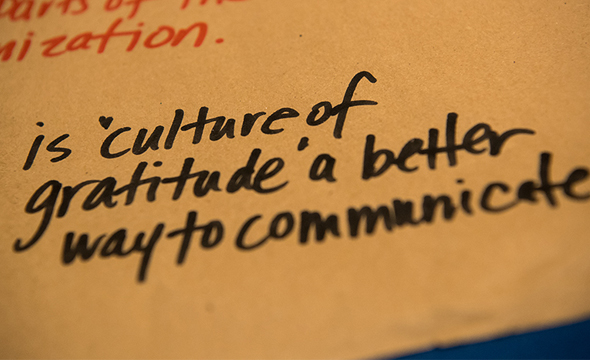 parts of the
nization.
is "culture of
gratitude" a better
way to communicate